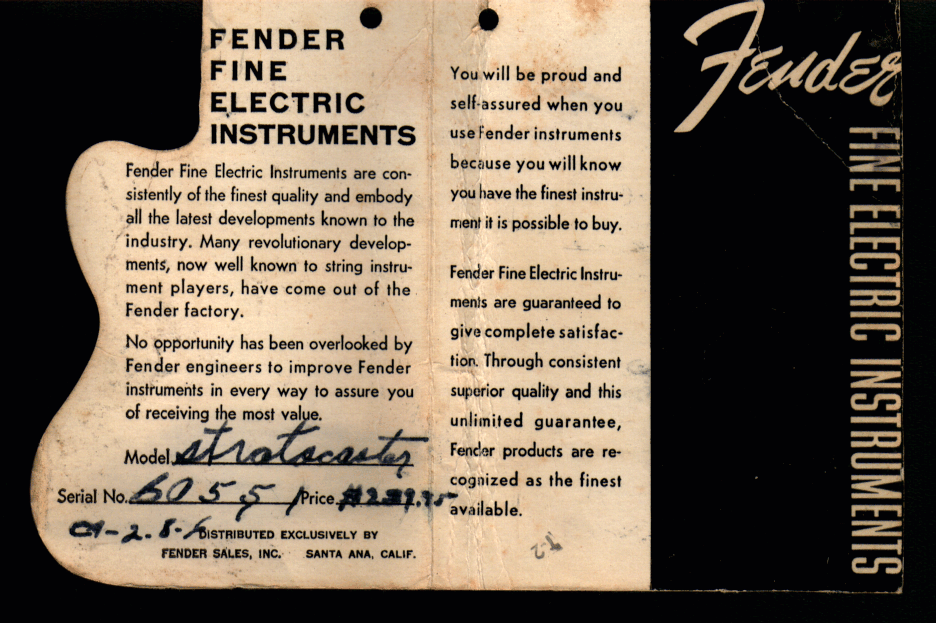 FENDER
FINE
ELECTRIC
INSTRUMENTS
Fender Fine Electric Instruments are con-
sistently of the finest quality and embody
all the latest developments known to the
industry. Many revolutionary develop-
ments, now well known to string instru-
ment players, have come out of the
Fender factory.
No opportunity has been overlooked by
Fender engineers to improve Fender
instruments in every way to assure you
of receiving the most value.
Model stratocaster
Serial No. 6055 Price
DISTRIBUTED EXCLUSIVELY BY
FENDER SALES, INC. SANTA ANA, CALIF.
You will be proud and
self-assured when you
use Fender instruments
because you will know
you have the finest instru-
ment it is possible to buy.
Fender Fine Electric Instru-
ments are guaranteed to
give complete satisfac-
tion. Through consistent
superior quality and this
unlimited guarantee,
Fender products are re-
cognized as the finest
available.
Fender
FINE ELECTRIC INSTRUMENTS